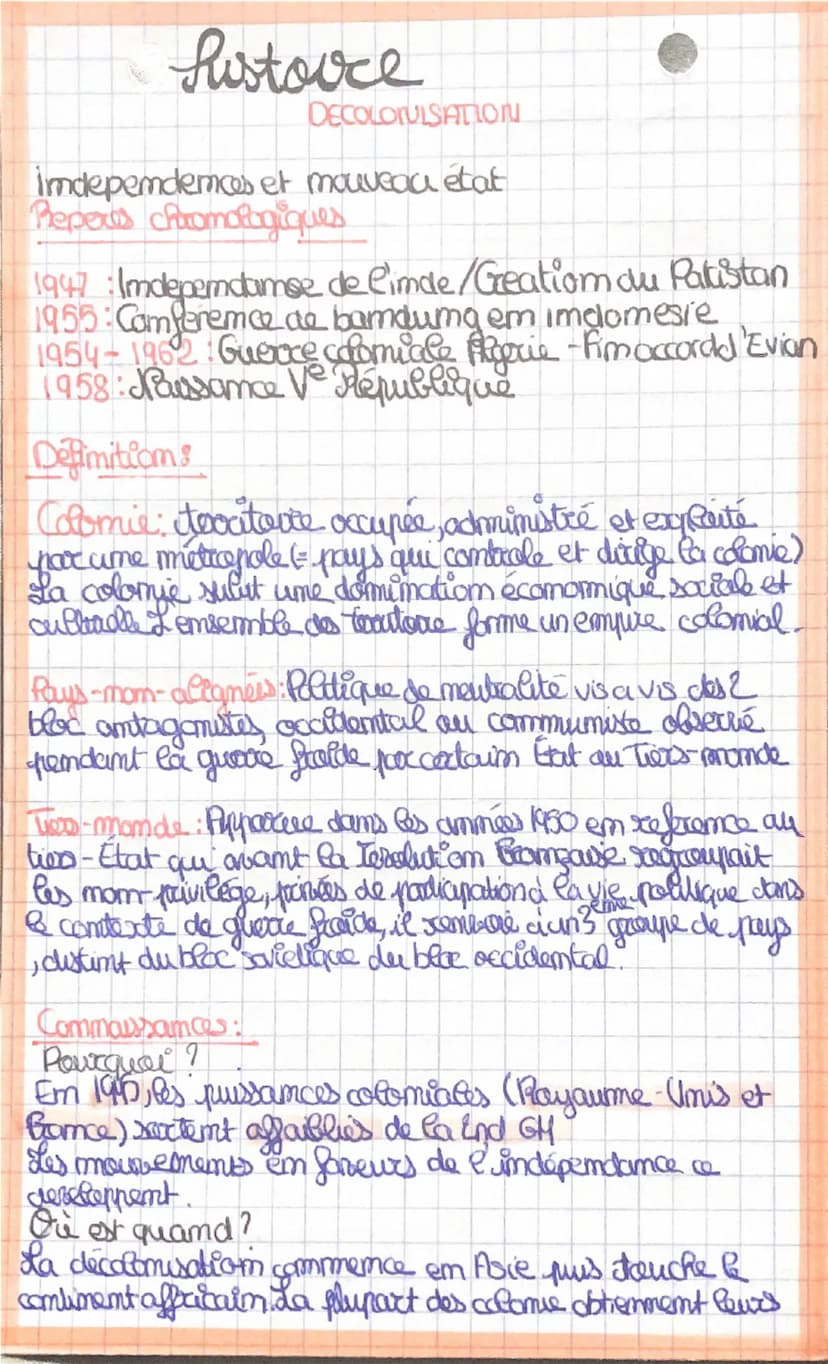 histoire
DECOLONISATION
independences et nouveau état
Reperes chronologiques
1947 : Independanse de l'inde / Creation du Pakistan
1955 : Conference de bandung en indonesie
1954-1962 : Guerre coloniale Algerie - fin accord d'Evian
1958 : Naissance Ve République
Définitions
Colonie : térritoire occupée, administré et exploité
par une métropole (= pays qui controle et dirige la colonie)
La colonie subit une domination économique sociale et
culturelle L'ensemble des territoire forme un empire colonial.
Pays-non-alignées : Politique de neutralité vis a vis des 2
bloc antagonistes, occidental ou communiste observé
pendant la guerre froide par certain État du Tiers-monde
Tiers-monde : Apparue dans les années 1950 en reference au
tiers-État qui avant la révolution française regroupait
les non-privilége, privées de participation à la vie politique dans
le contexte de guerre froide, il renvoie à un 3ème groupe de pays
, distint du bloc soviétique du bloc occidental.
Connaissances :
Pourquoi ?
En 1945, les puissances coloniales (Royaume-Unis et
France) sortent affaiblies de la 2nd GM
Les mouvements en faveurs de l'indépendance ce
developpent.
Où est quand ?
La décolonisation commence en Asie puis touche le
continent affricain. La plupart des colonie obtiennent leurs